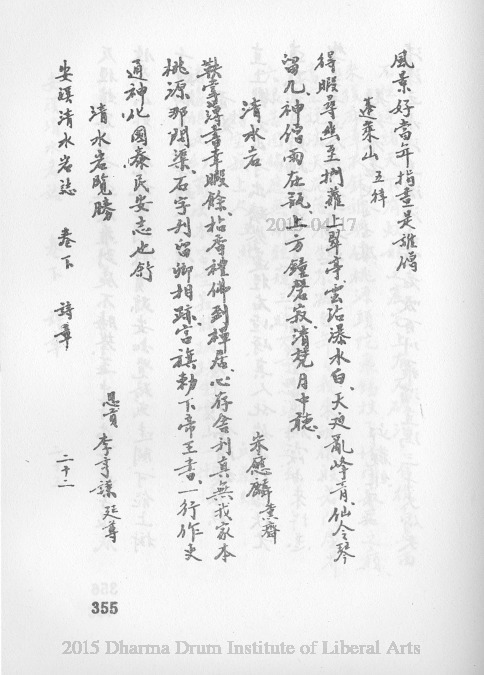 風景好當年指畫是誰僧
蓬萊山 五律
得暇尋幽至捫蘿上翠亭雲沾瀑水白、天迥亂峰青、仙令琴
留几神僧雨在瓶上方鐘磬寂、清梵月中聽、
清水岩 朱應麟 齋
鞅掌簿書幸暇餘、拈香禮佛到禪居、心存舍利真無我家本
桃源那問渠、石字刊留卿相跡、宮旗勅下帝王書、一行作吏
通神化、國泰民安志也舒
清水岩覽勝 恩貢 李 謙廷尊
安溪清水岩誌 卷下 詩章 二十二
355
2015-04-17
2015 Dharma Drum Institute of Liberal Arts